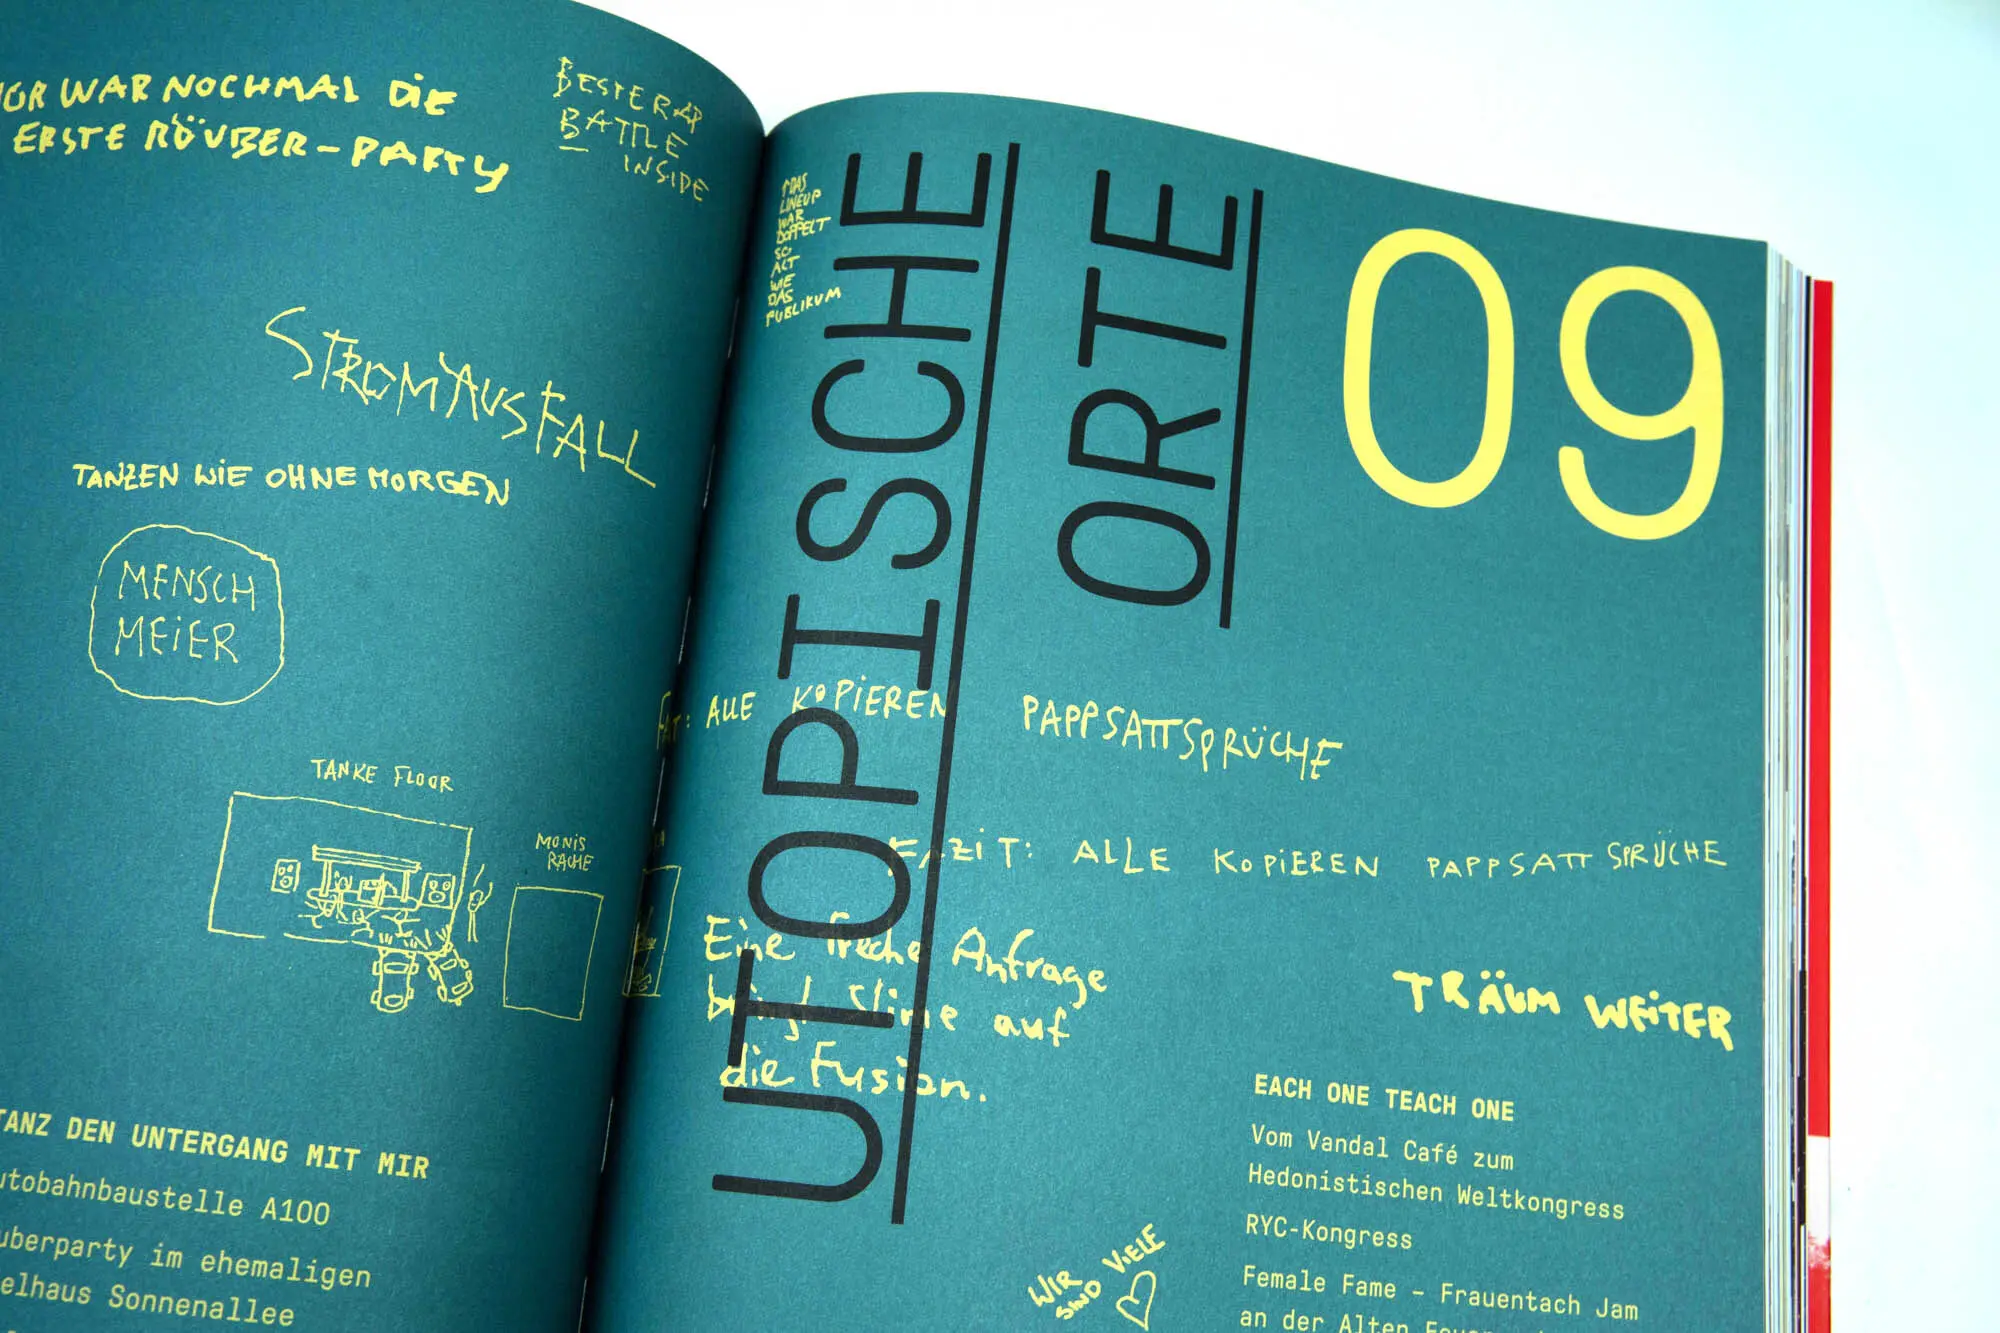 WAR NOCHMAL DIE
ERSTE RÖUBER-PARTY
BESTE RAP
BATTLE
INSIDE
STROMAUSFALL
TANZEN WIE OHNE MORGEN
MENSCH
MEIER
TANKE FLOOR
MONIS
RACHE
TANZ DEN UNTERGANG MIT MIR
A100
im ehemaligen
Sonnenallee
DAS
LINEUP
WAR
DOPPELT
SO
ALT
WIE
DAS
PUBLIKUM
UTOPISCHE
ORTE
09
ALLE KOPIEREN PAPPSATTSPRÜCHE
FAZIT: ALLE KOPIEREN PAPPSATT SPRÜCHE
Eine freche Anfrage
bringt Slime auf
die Fusion.
TRÄUM WEITER
EACH ONE TEACH ONE
Vom Vandal Café zum
Hedonistischen Weltkongress
RYC-Kongress
Female Fame – Frauentach Jam
an der Alten
WIR
SIND VIELE